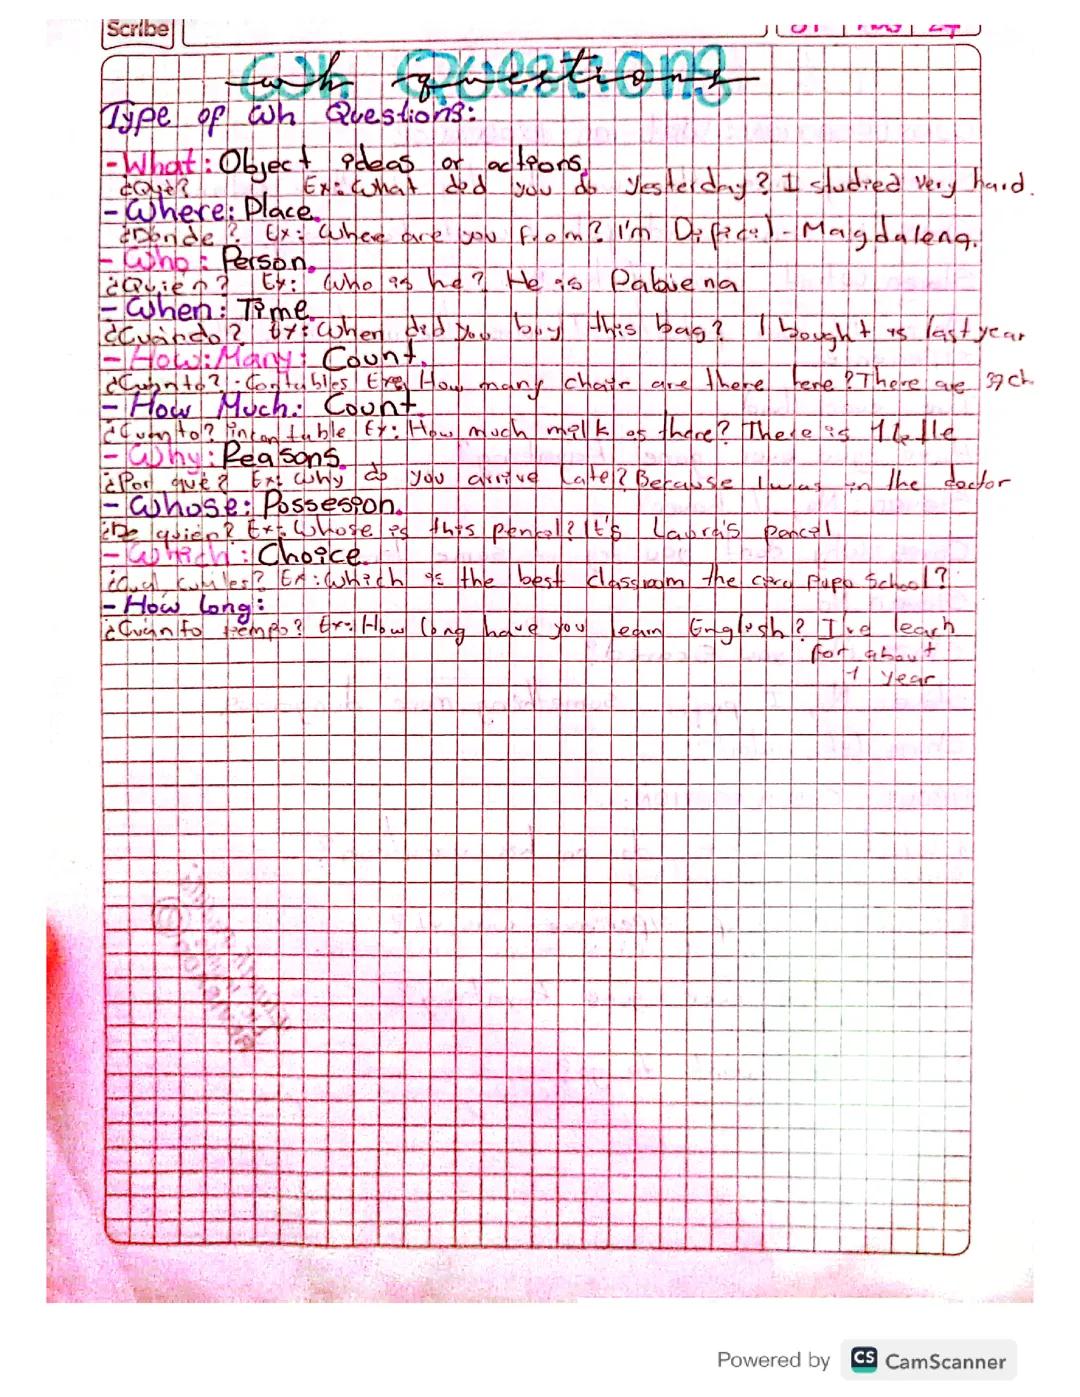 Scribe
Wh Questions
Type of Wh Questions:
-What: Object ideas or actions.
¿Qué? Ex: What did you do yesterday? I studied very hard.
-Where: Place.
¿Dónde? Ex: Where are you from? I'm - Magdalena.
-Who: Person.
¿Quien? Ex: Who is he? He is
-When: Time.
¿Cuándo? Ex: When did you buy this bag? I bought is last year
-How: Many: Count.
¿Cuanto? Contables Exe How many chair are there here? There are ch
-How Much: Count.
¿Cuanto? Ex: How much milk is there? There is
-Why: Reasons.
¿Por qué? Ex: Why do you arrive late? Because I was in the doctor
-Whose: Possesion.
¿De quien? Ex: Whose is this pencil? It's Laura's pencil
-Which: Choice.
Ex: Which is the best classroom the Pupo School?
-How long:
¿Cuanto tiempo? Ex: How long have you learn English? I've
for about
1 year
Powered by CS CamScanner